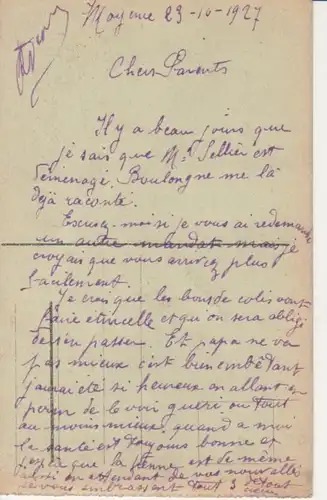 Mayenne 23-10-1927
Chers Parents
Il y a beau jours que
je sais que Mr Sellier est
déménagé. Boulongne me la
déjà raconté.
Excusez moi si je vous ai redemandé
un autre mandat mais je
croyais que vous arrivez plus
facilement.
Je crois que les bons de colis vont
faire etincelle et qu'on sera obligé
de s'en passer. Et papa ne va
pas mieux c'est bien embêtant
j'aurai été si heureux en allant en
perm de le voir quéri ou tout
au moins mieux, quand a moi
la santé est toujours bonne et
j'espère que la tienne est de même
aussi en attendant de vos nouvelles
je vous embrassant tout 3